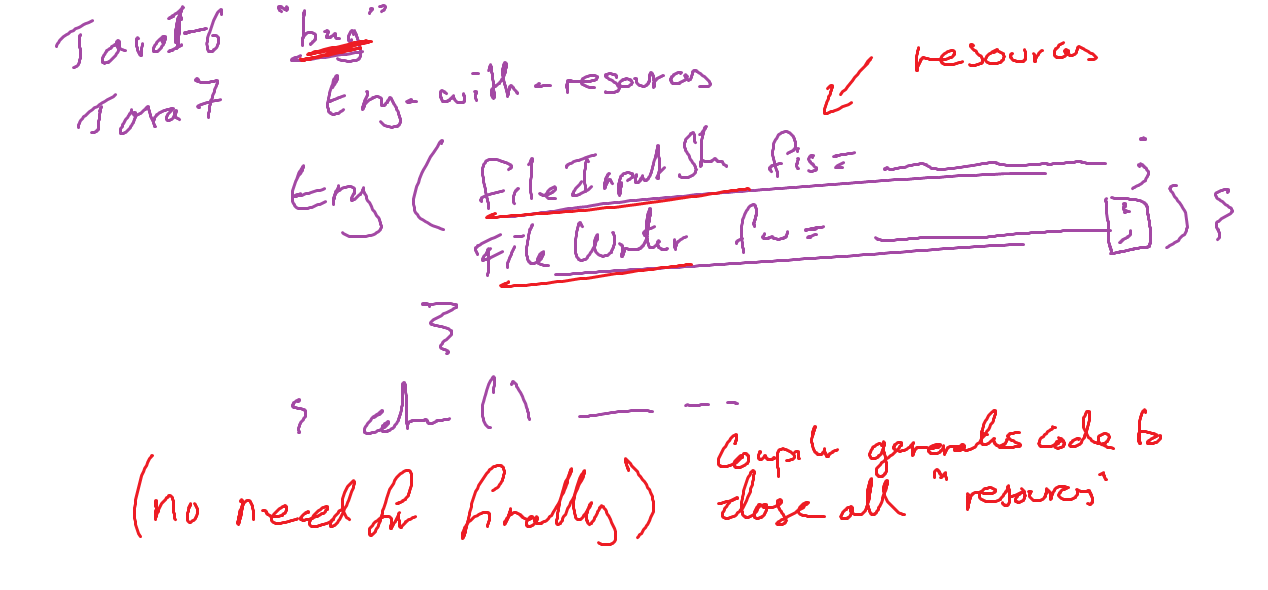 Java1-6 "bug"
Java 7 try-with-resources
resources
try ( FileInputStr fis = ;
File Writer fw = ; ) {
}
} catch () --
(no need for finally)
Compiler generates code to
close all "resources"